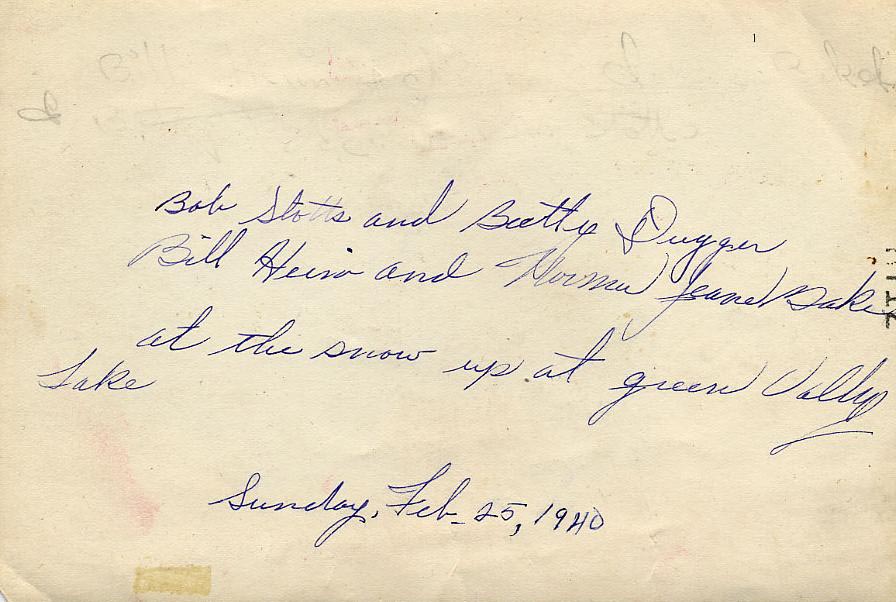 Bob Stotts and Betty Dugger
Bill Heiso and Norma Jeane Bake
at the snow up at green Vally
Lake
Sunday, Feb. 25, 1940